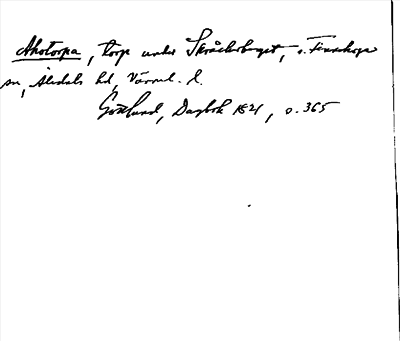 Ahotorpa, torp under Skråckarberget, s. Finnskoga
sn, Älvdals hd, Värml. l.
Gottlund, Dagbok 1821, s. 365